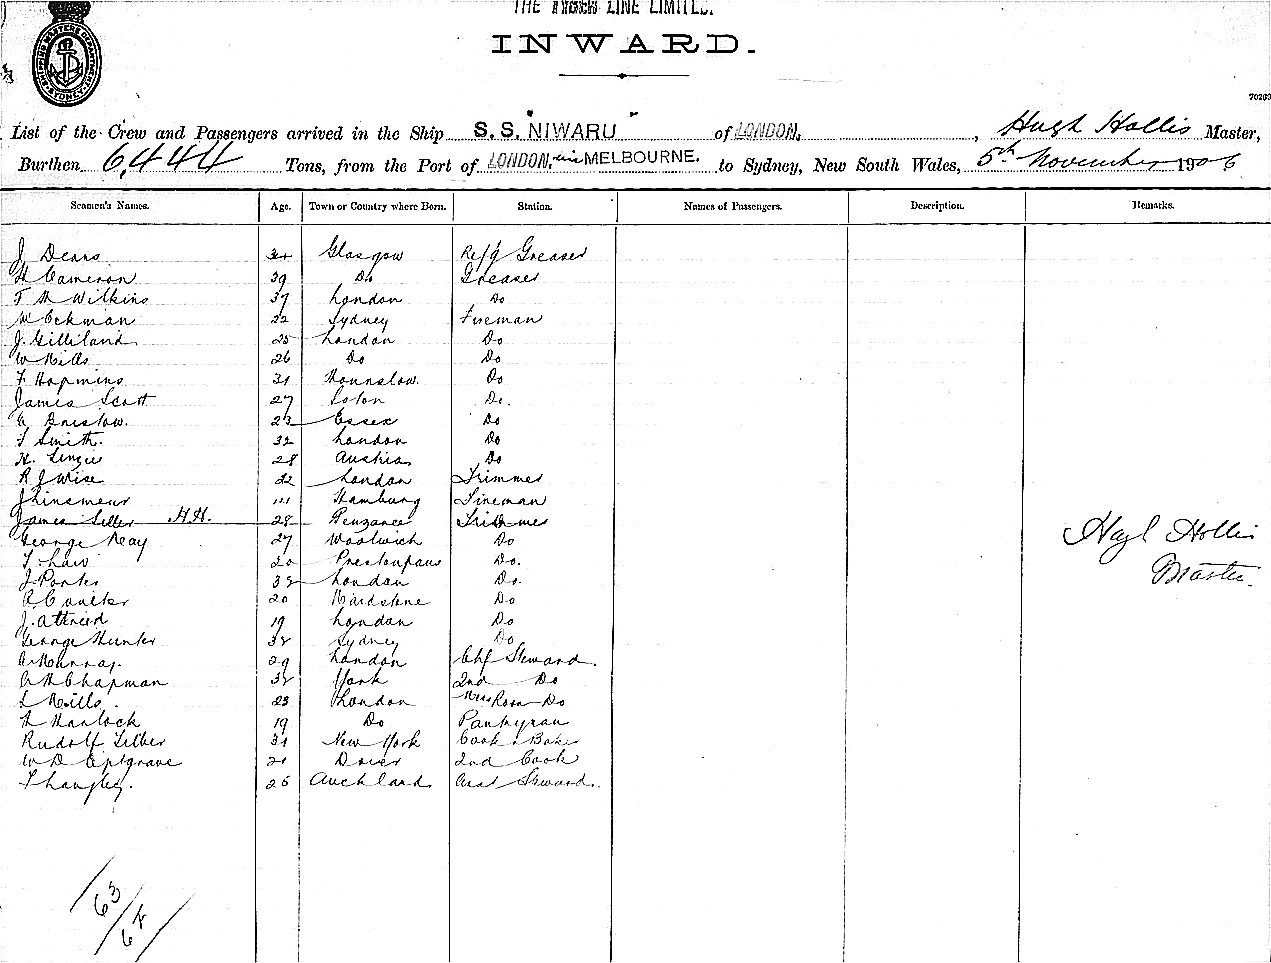 THE TYSER LINE LIMITED.
INWARD.
SHIPPING MASTERS DEPARTMENT SYDNEY
List of the Crew and Passengers arrived in the Ship S.S. NIWARU of LONDON, Hugh Hollis Master,
Burthen 6,444 Tons, from the Port of LONDON. via MELBOURNE. to Sydney, New South Wales, 5th November 1906
Seamen's Names. Age. Town or Country where Born. Station. Names of Passengers. Description. Remarks.
J Deans 34 Glasgow Refg Greaser
H Cameron 39 Do Greaser
F M Wilkins 37 London Do
W Eckman 22 Sydney Fireman
J. Gilliland 25 London Do
W Mills 26 Do Do
F. Hopmins 31 Hounslow. Do
James Scott 27 Do.
A Bristow. 23 Essex Do
F Smith. 32 London Do
H. 28 Austria Do
R J Wise 22 London Trimmer
Hamburg Fireman
James Seller H.H. 28 Penzance Trimmer
George Reay 27 Woolwich Do
20 Prestonpans Do.
J. Porter 38 London Do.
A Coulter 20 Maidstone Do
J. Attread 19 London Do
George Hunter 38 Sydney Do
A Murray. 29 London Chf Steward.
A H Chapman 38 York 2nd Do
L Mills. 23 London Mess Room Do
Hanlock 19 Do Pantryman
Rudolf 31 New York Cook & Baker
W D 21 Dover 2nd Cook
F Langley. 26 Auckland. Asst Steward.
Hugh Hollis
Master.
63
64